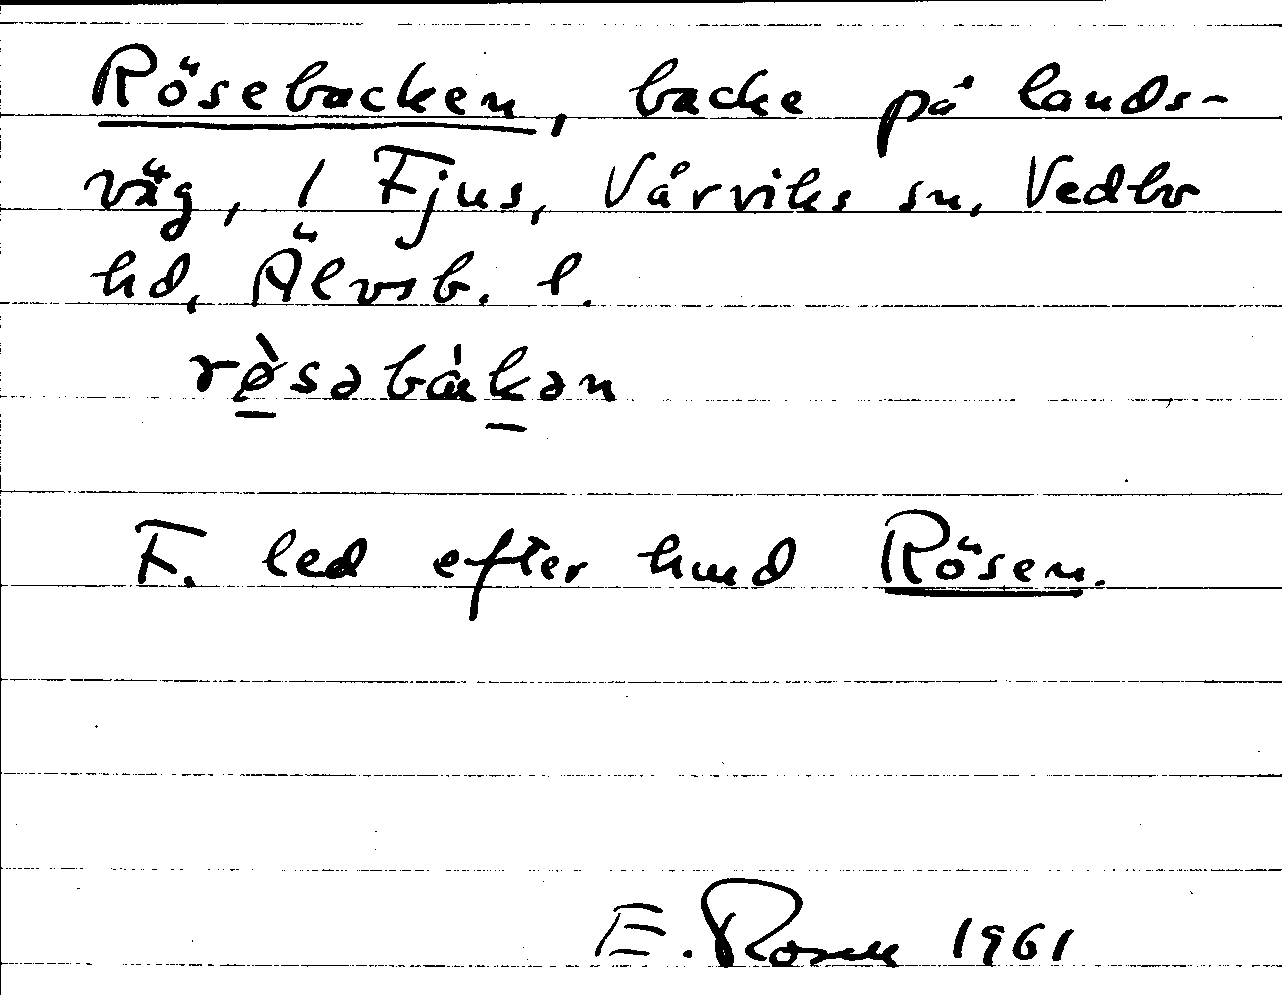 Rösebacken, backe på lands-
väg, 1 Fjus, Vårviks sn, Vedbo
hd, Älvsb. l.
rø̀səbàkən
F. led efter hund Rösen.
E. Rosen 1961